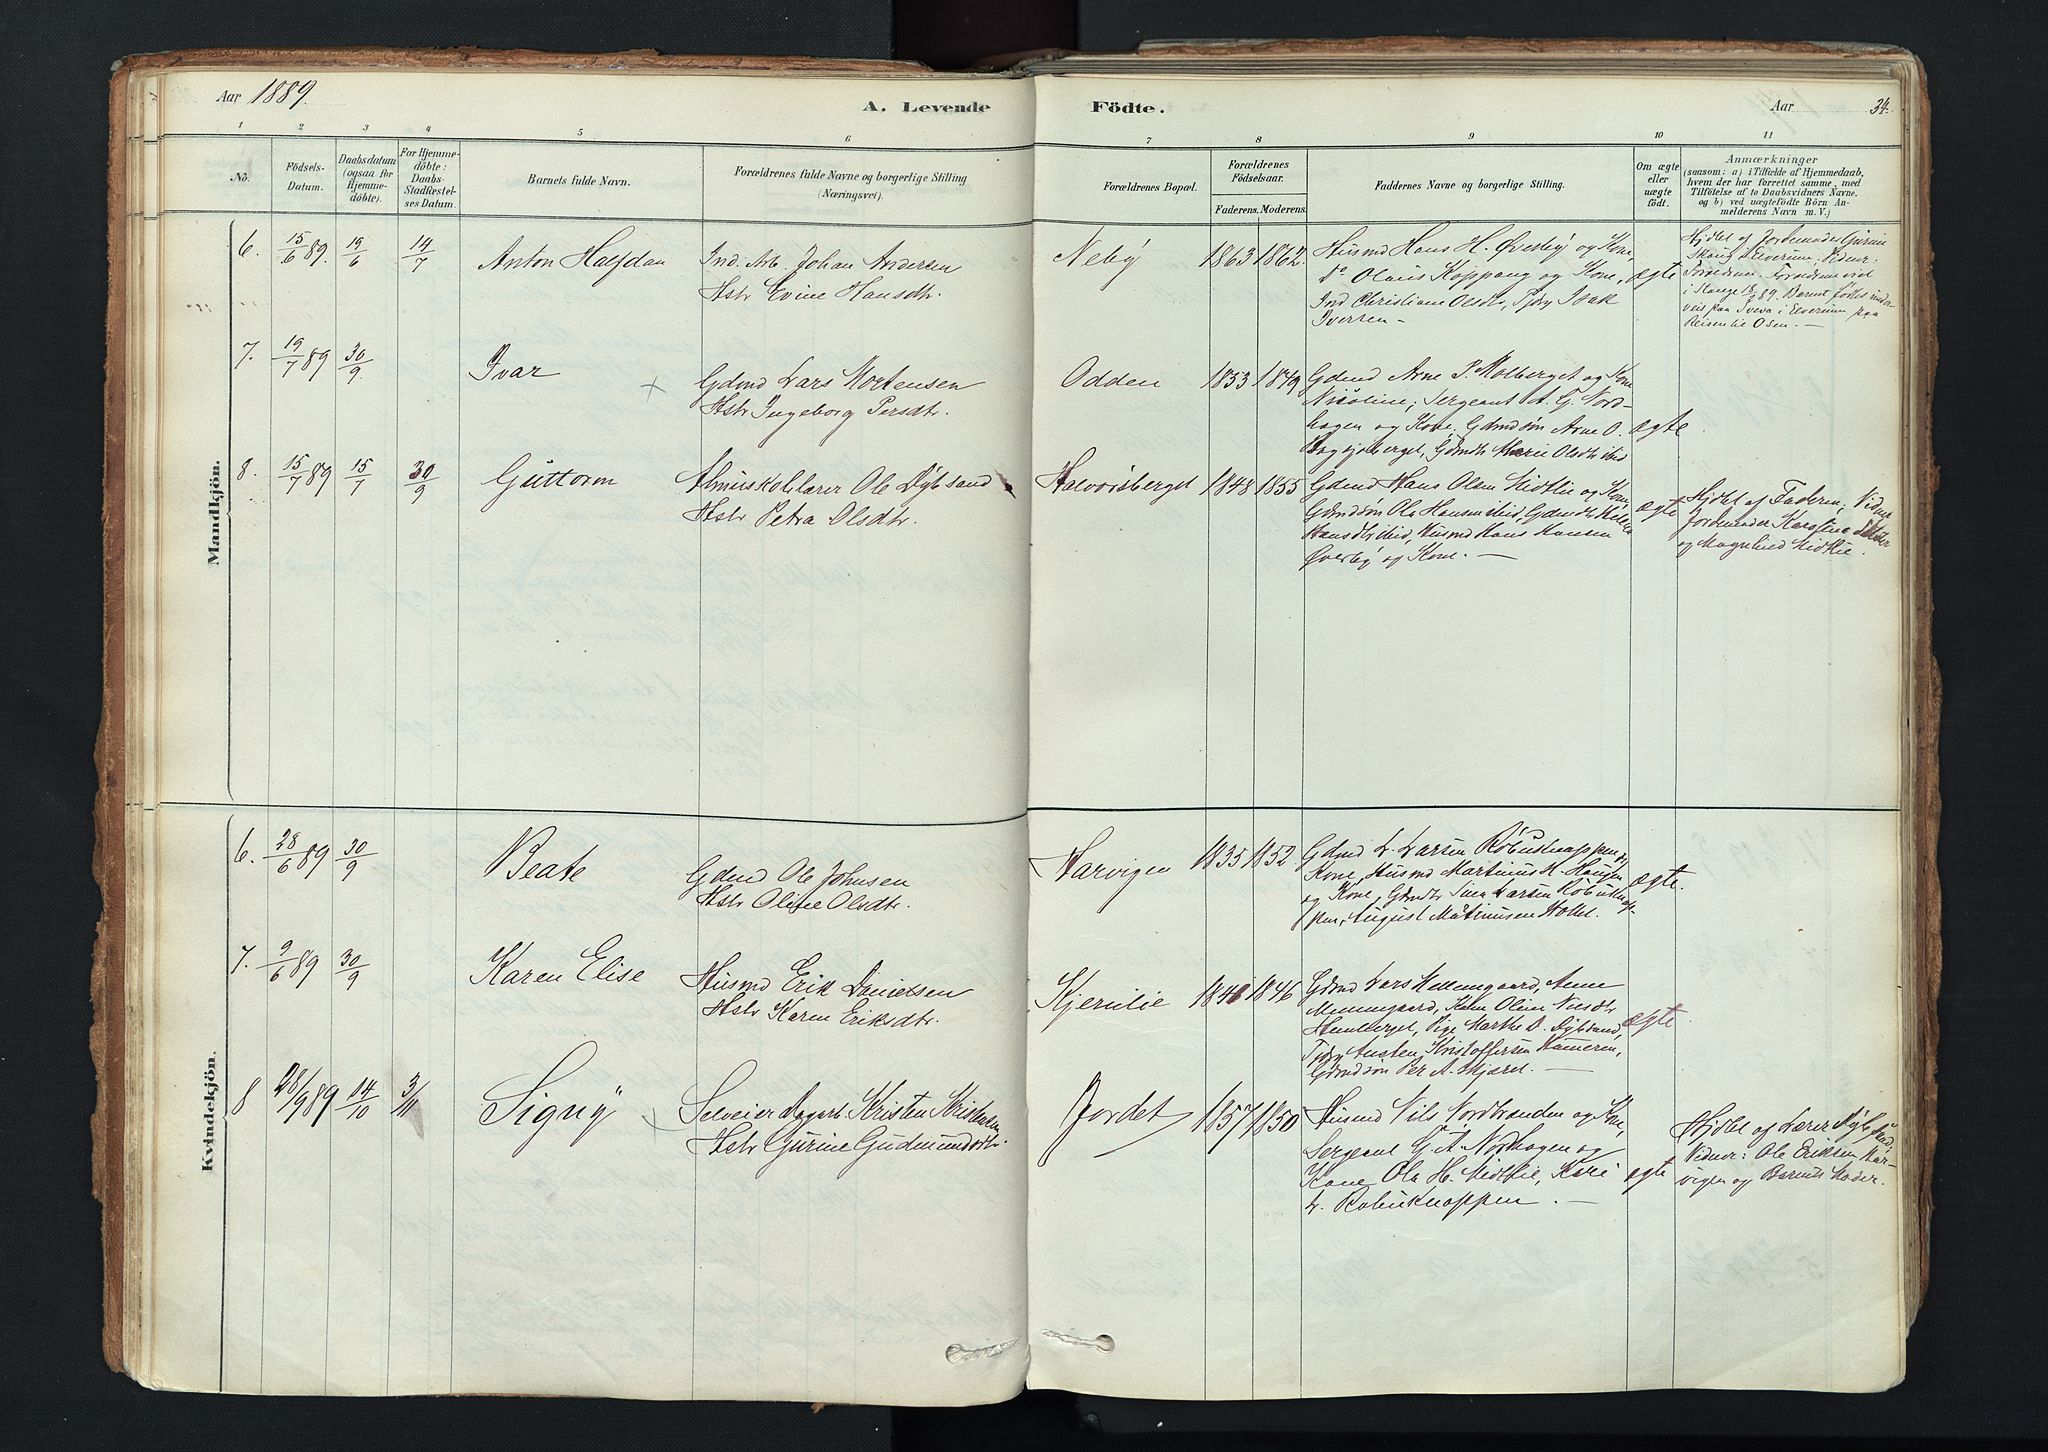 Aar 1889.
A. Levende
Födte.
Aar
34.
1 2 3 4 5 6 7 8 9 10 11
No.
Födsels-
Datum.
Daabsdatum
(ogsaa for
Hjemme-
döbte).
For Hjemme-
döbte:
Daabs-
Stadfæstel-
ses Datum.
Barnets fulde Navn.
Forældrenes fulde Navne og borgerlige Stilling
(Næringsvei).
Forældrenes Bopæl.
Forældrenes
Födselsaar.
Faderens. Moderens.
Faddernes Navne og borgerlige Stilling.
Om ægte
eller
uægte
födt.
Anmærkninger
(saasom: a) i Tilfælde af Hjemmedaab,
hvem der har forrettet samme, med
Tilföielse af to Daabsvidners Navne.
og b) ved uægtefödte Börn An-
melderens Navn m. V.)
Mandkjön.
6. 15/6 89. 19/6 14/7 Anton Halfdan
Ind. Arb. Johan Andersen
Hstr Evine Hansdtr.
Neby 1863 1862.
Husmd Hans H. Øverby og Kone,
do Olaus Koppang og Kone,
Ind Christiane Olsdtr, Tjdr Isak
Iversen –
ægte
Hjdbt af Jordemoder Gurine
Skaug Elverum; Vidner:
Forældrene. Forældrene viet
i Stange 18/ 89. Barnet fødtes under-
veis paa i Elverum paa
Reisen til Osen. –
7. 19/7 89 30/9. Ivar
Gdmd Lars Mortensen
Hstr Ingeborg Persdtr.
Odden 1853 1849
Gdmd Arne P. Molberget og Kone
Nicoline; Sergeant A. G. Nord-
hagen og Kone. Gdmdsøn Arne O.
berget, Gdmdtr Marie Olsdtr ibid
ægte
8. 15/7 89 15/7 30/9 Guttorm
Almueskolelærer Ole Dybsand
Hstr Petra Olsdtr.
Halvorsberget 1848 1855
Gdmd Hans Olsen Midtlie og Kone,
Gdmdsøn Ole Hansen ibid, Gdmdtr Helene
Hansdtr ibid, Husmd Hans Hansen
Øverby og Kone. –
ægte
Hjdbt af Faderen; Vidner
Jordemoder Karoline
og Magnhild Midtlie.
Kvindekjön.
6. 28/6 89 30/9 Beate
Gdmd Ole Johnsen
Hstr Oline Olsdtr.
Narvigen 1835 1852
Gdmd L. Larsen Røbustknappen og
Kone, Husmd Martinus H. Haugen
og Kone, Gdmdtr Sina Larsen Røbustknap-
pen, August Martinusen Holtet.
ægte.
7. 9/6 89 30/9 Karen Elise
Husmd Erik Danielsen
Hstr Karen Eriksdtr.
Kjernlie 1840 1846
Gdmd Lars Mellemgaard, Anne
Mellemgaard, Oline
berget, Pige Marthe D. Dybsand,
Tjdr Austen Kristoffersen Hameren,
Gdmdsøn Per A. –
ægte.
8 28/9 89 14/10 3/11 Signy
Selveier Dagarb. Kristen Kristensen
Hstr Gurine Gudmundsdtr.
Jordet 1857 1850
Husmd Nils Nordstranden og Kone,
Sergeant G. A. Nordhagen og
Kone Ole H. Midtlie, Kari
L. Robustknappen. –
ægte
Hjdbt af Lærer Dybsand,
Vidner: Ole Eriksen Nar-
vigen og Barnets Moder.